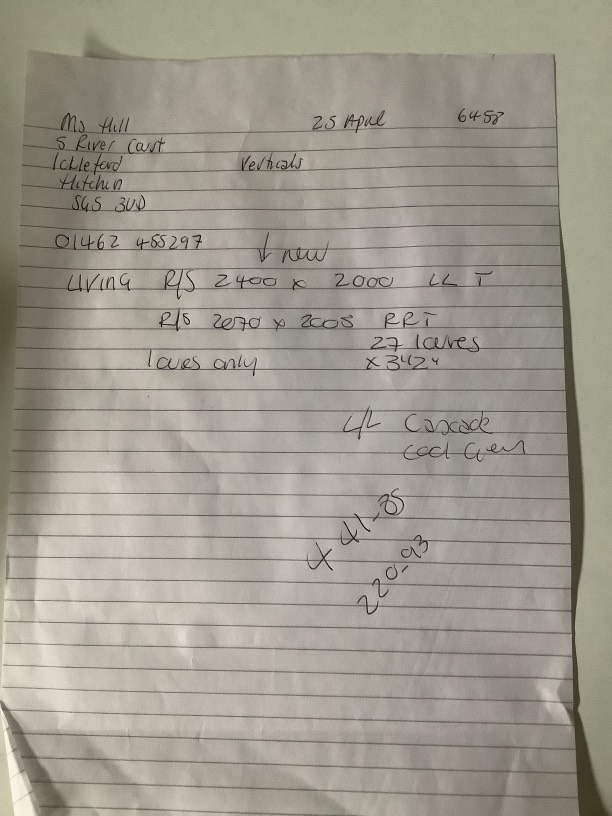 Ms Hill 25 April 6458
5 River Court
Ickleford Verticals
Hitchin
SG5 3UD
01462 455297 ↓ new
Living R/S 2400 x 2000 LL T
R/S 2070 x 2005 RRT
27 louvres
louvres only x 3 1/2"
L/L Cascade
Cool
441-85
220-93